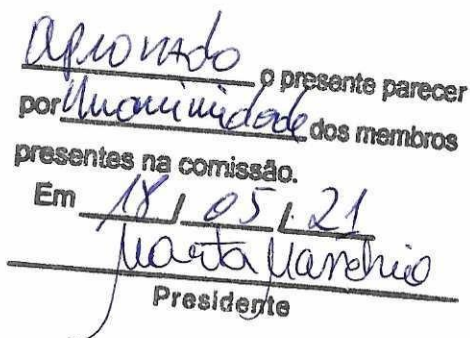 aprovado o presente parecer
por unanimidade dos membros
presentes na comissão.
Em 18 / 05 / 21
Marta
Presidente